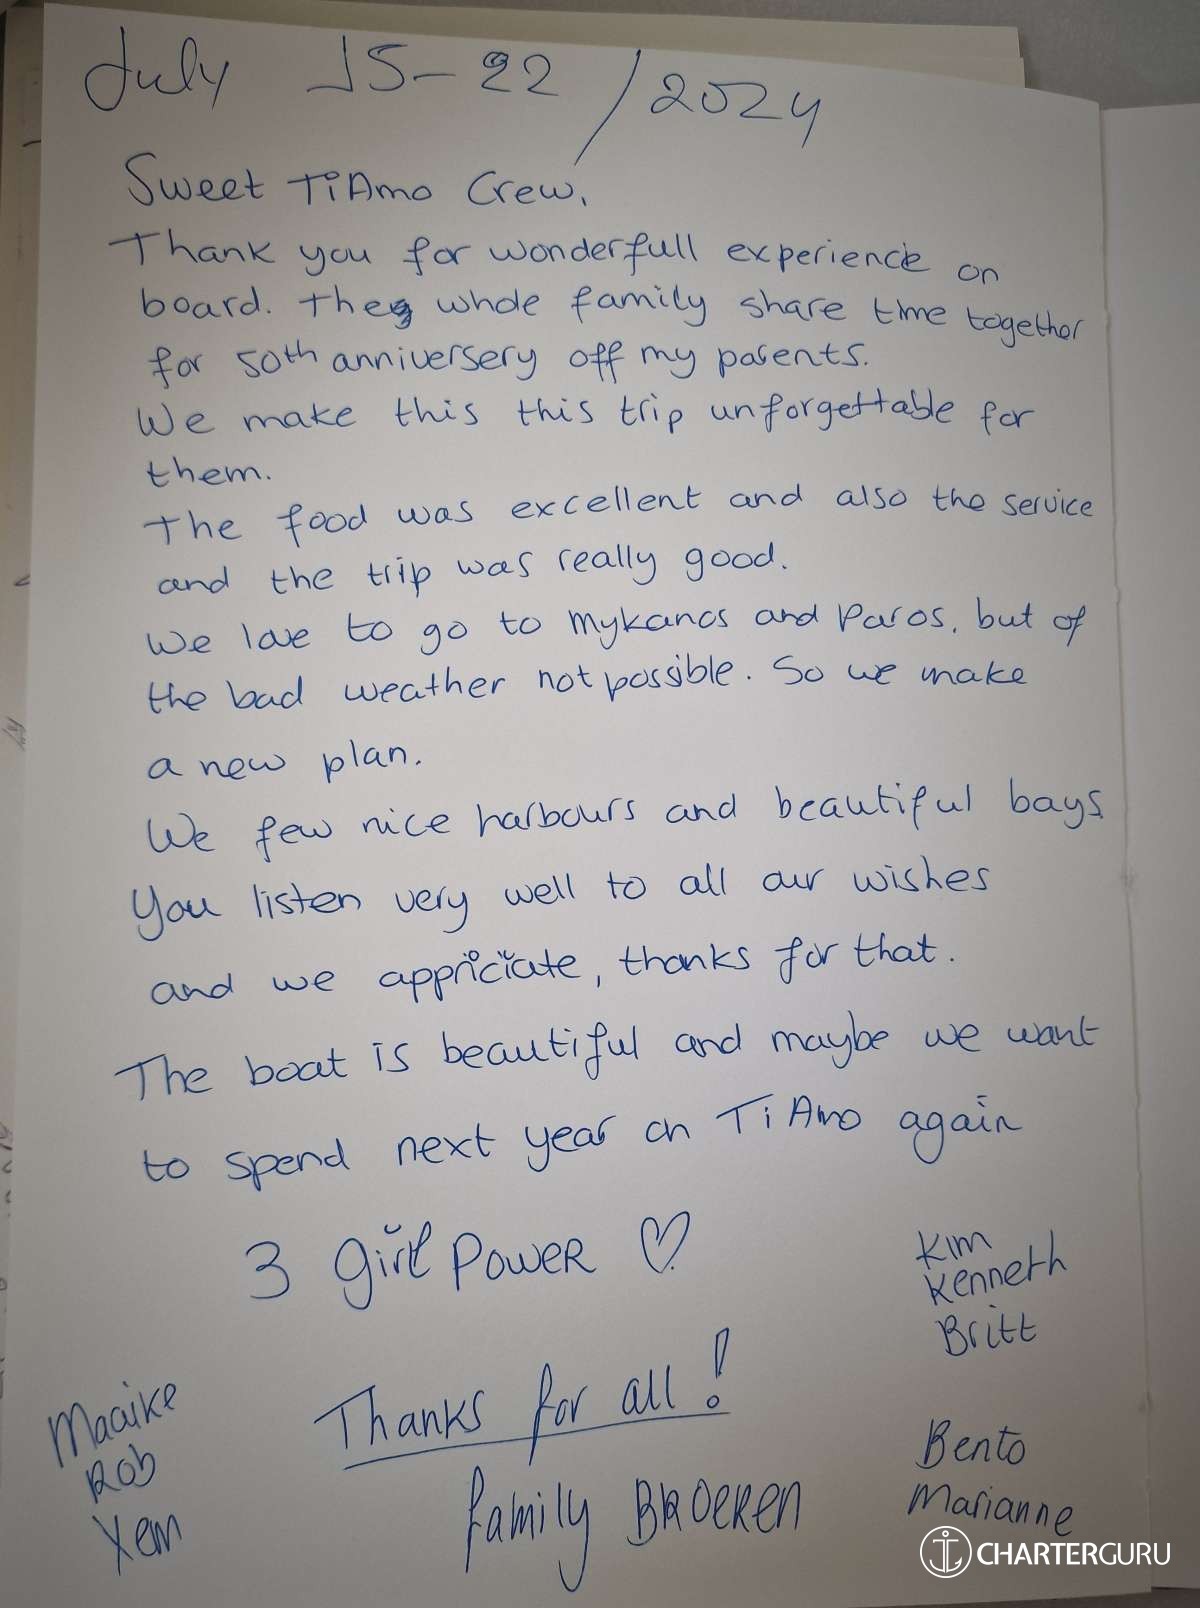 July 15-22 / 2024
Sweet TiAmo Crew,
Thank you for wonderfull experience on
board. The whole family share time together
for 50th anniversery off my parents.
We make this this trip unforgettable for
them.
The food was excellent and also the service
and the trip was really good.
We love to go to Mykanos and Paros, but of
the bad weather not possible. So we make
a new plan.
We few nice harbours and beautiful bays
You listen very well to all our wishes
and we appriciate, thanks for that.
The boat is beautiful and maybe we want
to spend next year on TiAmo again
3 girl POWER ♡
Kim
Kenneth
Britt
Thanks for all!
Maaike
Rob
Yem
Family BROEREN
Bento
Marianne
CHARTERGURU